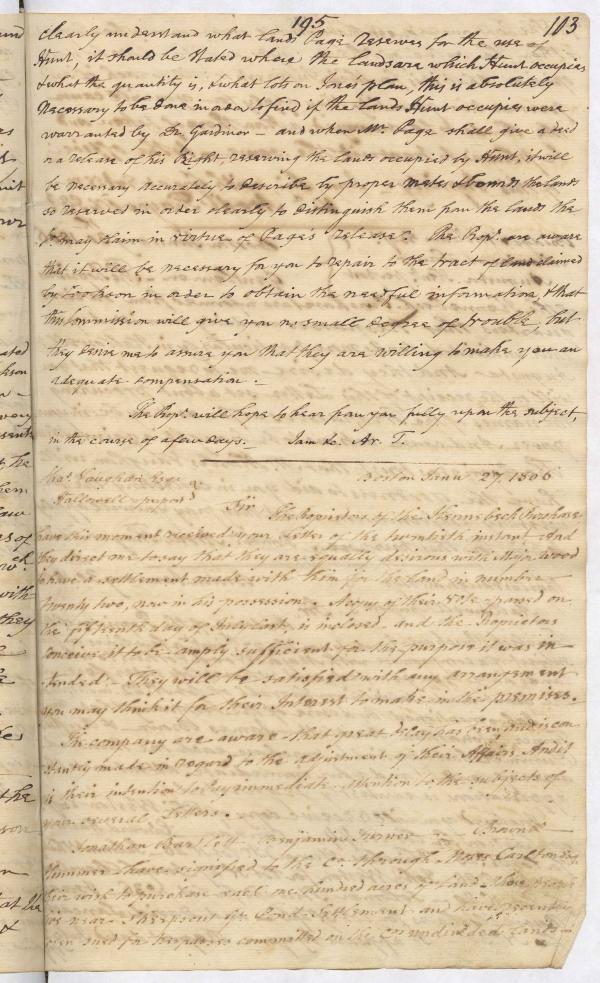 195
103
clearly understand what lands Page reserves for the use of
Hunt, it should be stated where the lands are which Hunt occupies
& what the quantity is, & what lots on Jones' plan, this is absolutely
necessary to be done in order to find if the lands Hunt occupies were
warranted by Dr. Gardiner – and when Mr. Page shall give a deed
or a release of his Right reserving the lands occupied by Hunt, it will
be necessary accurately to describe by proper metes & bounds the lands
so reserved in order clearly to distinguish them from the lands the
may claim in virtue of Page's release. The Propr. are aware
that it will be necessary for you to repair to the tract of land claimed
by in order to obtain the needful information, & that
this Commission will give you no small degree of trouble, but
they desire me to assure you that they are willing to make you an
adequate compensation.
The Propr. will hope to hear from you fully upon the subject,
in the course of a few days. – I am &c. Ar. T.
Boston Janu 27. 1806
Cha. Vaughan Esqr
Hallowell
Sir
The Proprietors of the Kennebeck Purchase
have this moment received your letter of the twentieth instant. And
they direct me to say that they are equally desirous with Major Wood
to have a settlement made with them for the Land in number
twenty two, now in his possession. A copy of their Vote passed on
the fifteenth day of July last, is inclosed and the Proprietors
conceive it to be amply sufficient for the purpose it was in-
tended – They will be satisfied with any arrangement
you may think it for their Interest to make in the premises.
The company are aware that great delay has been
made in regard to the adjustment of their Affairs. And it
is their intention to pay immediate attention to the subjects of
your several Letters.
Jonathan Bartlett Benjamin Turner Brown
have signified to the Co. through Moses Carlton Esq
their wish to purchase each one hundred acres of Land
near Sheepscut Gt. Pond Settlement and have recently
been sued for trespasses committed on the Co. undivided Lands –